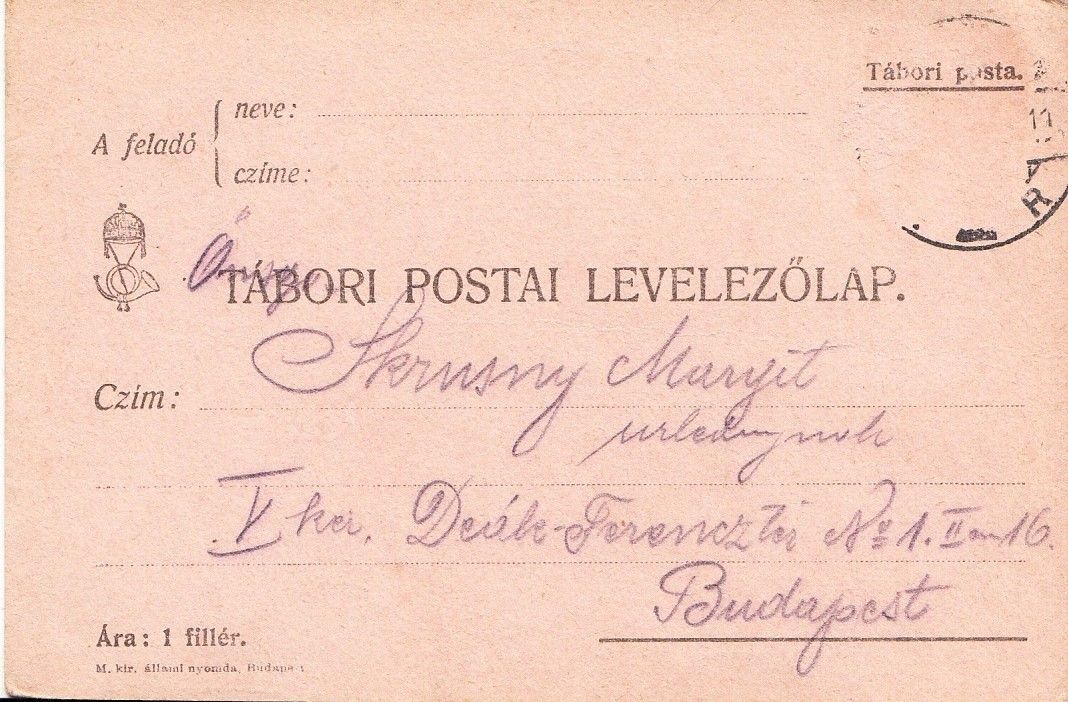 Tábori posta.
A feladó
neve:
czíme:
TÁBORI POSTAI LEVELEZŐLAP.
Czím:
Skrusny Margit
urleánynak
V ker. Deák-Ferencztér No 1. II em 16.
Budapest
Ára: 1 fillér.
M. kir. állami nyomda, Budapest